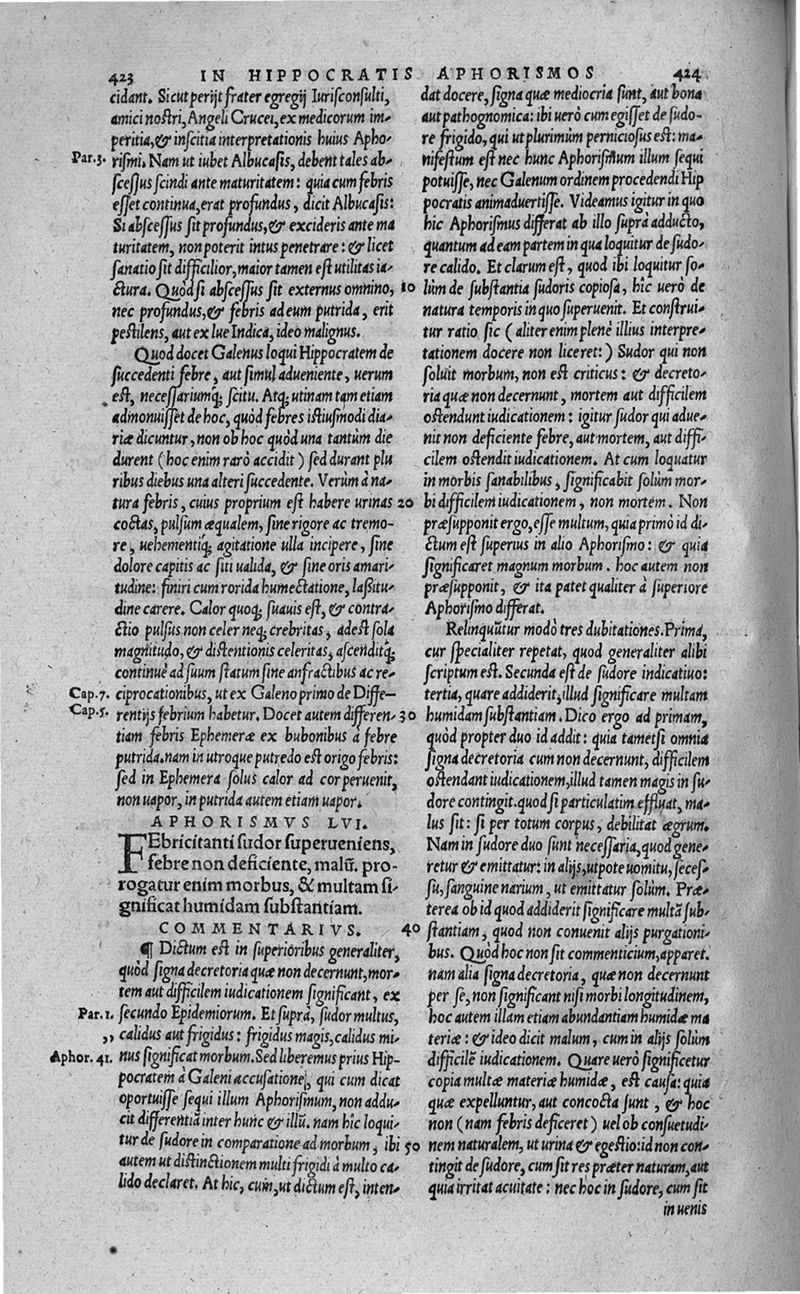 423 IN HIPPOCRATIS APHORISMOS 424
cidant. Sicut perijt frater egregij Iurisconsulti,
amici nostri, Angeli Crucei, ex medicorum im-
peritia, & inscitia interpretationis huius Apho-
Par. 3. rismi. Nam ut iubet Albucasis, debent tales ab-
scessus scindi ante maturitatem: quia cum febris
esset continua, erat profundus, dicit Albucasis:
Si abscessus sit profundus, & excideris ante ma
turitatem, non poterit intus penetrare: & licet
sanatio sit difficilior, maior tamen est utilitas ia-
ctura. Quòd si abscessus sit externus omnino, 10
nec profundus, & febris ad eum putrida, erit
pestilens, aut ex lue Indica, ideo malignus.
Quod docet Galenus loqui Hippocratem de
succedenti febre, aut simul adueniente, uerum
est, necessariumq; scitu. Atq; utinam tam etiam
admonuisset de hoc, quòd febres istiusmodi dia-
riæ dicuntur, non ob hoc quòd una tantùm die
durent (hoc enim rarò accidit) sed durant plu
ribus diebus una alteri succedente. Verùm à na-
tura febris, cuius proprium est habere urinas 20
coctas, pulsum æqualem, sine rigore ac tremo-
re, uehementiq; agitatione ulla incipere, sine
dolore capitis ac siti ualida, & sine oris amari-
tudine: finiri cum rorida humectatione, laßitu-
dine carere. Calor quoq; suauis est, & contra-
ctio pulsus non celer neq; crebritas, adest sola
magnitudo, & distentionis celeritas, ascenditq;
continuè ad suum statum sine anfractibus ac re-
Cap. 7. ciprocationibus, ut ex Galeno primo de Diffe-
Cap. 5. rentijs febrium habetur. Docet autem differen- 30
tiam febris Ephemeræ ex bubonibus à febre
putrida. nam in utroque putredo est origo febris:
sed in Ephemera solus calor ad cor peruenit,
non uapor, in putrida autem etiam uapor.
APHORISMVS LVI.
FEbricitanti sudor superueniens,
febre non deficiente, malũ. pro-
rogatur enim morbus, & multam si-
gnificat humidam substantiam.
COMMENTARIVS. 40
¶ Dictum est in superioribus generaliter,
quòd signa decretoria quæ non decernunt, mor-
tem aut difficilem iudicationem significant, ex
Par. 1. secundo Epidemiorum. Et suprà, sudor multus,
,, calidus aut frigidus: frigidus magis, calidus mi-
Aphor. 41. nus significat morbum. Sed liberemus prius Hip-
pocratem à Galeni accusatione, qui cum dicat
oportuisse sequi illum Aphorismum, non addu-
cit differentiã inter hunc & illũ. nam hîc loqui-
tur de sudore in comparatione ad morbum, ibi 50
autem ut distinctionem multi frigidi à multo ca-
lido declaret. At hic, cum, ut dictum est, inten-
dat docere, signa quæ mediocria sunt, aut bona
aut pathognomica: ibi uerò cum egisset de sudo-
re frigido, qui ut plurimùm perniciosus est: ma-
nifestum est nec hunc Aphorismum illum sequi
potuisse, nec Galenum ordinem procedendi Hip
pocratis animaduertisse. Videamus igitur in quo
hic Aphorismus differat ab illo suprà adducto,
quantum ad eam partem in qua loquitur de sudo-
re calido. Et clarum est, quod ibi loquitur so-
lùm de substantia sudoris copiosa, hîc uerò de
natura temporis in quo superuenit. Et construi-
tur ratio sic (aliter enim plenè illius interpre-
tationem docere non liceret:) Sudor qui non
soluit morbum, non est criticus: & decreto-
ria quæ non decernunt, mortem aut difficilem
ostendunt iudicationem: igitur sudor qui adue-
nit non deficiente febre, aut mortem, aut diffi-
cilem ostendit iudicationem. At cum loquatur
in morbis sanabilibus, significabit solùm mor-
bi difficilem iudicationem, non mortem. Non
præsupponit ergo, esse multum, quia primò id di-
ctum est superius in alio Aphorismo: & quia
significaret magnum morbum. hoc autem non
præsupponit, & ita patet qualiter à superiore
Aphorismo differat.
Relinquũtur modò tres dubitationes. Prima,
cur specialiter repetat, quod generaliter alibi
scriptum est. Secunda est de sudore indicatiuo:
tertia, quare addiderit, illud significare multam
humidam substantiam. Dico ergo ad primam,
quòd propter duo id addit: quia tametsi omnia
signa decretoria cum non decernunt, difficilem
ostendant iudicationem, illud tamen magis in su-
dore contingit. quod si particulatim effluat, ma-
lus sit: si per totum corpus, debilitat ægrum.
Nam in sudore duo sunt necessaria, quod gene-
retur & emittatur: in alijs, utpote uomitu, seces-
su, sanguine narium, ut emittatur solùm. Præ-
terea ob id quod addiderit significare multã sub-
stantiam, quod non conuenit alijs purgationi-
bus. Quòd hoc non sit commenticium, apparet.
nam alia signa decretoria, quæ non decernunt
per se, non significant nisi morbi longitudinem,
hoc autem illam etiam abundantiam humidæ ma
teriæ: & ideo dicit malum, cum in alijs solùm
difficilẽ iudicationem. Quare uerò significetur
copia multæ materiæ humidæ, est causa: quia
quæ expelluntur, aut concocta sunt, & hoc
non (nam febris deficeret) uel ob consuetudi-
nem naturalem, ut urina & egestio: id non con-
tingit de sudore, cum sit res præter naturam, aut
quia irritat acuitate: nec hoc in sudore, cum sit
in uenis